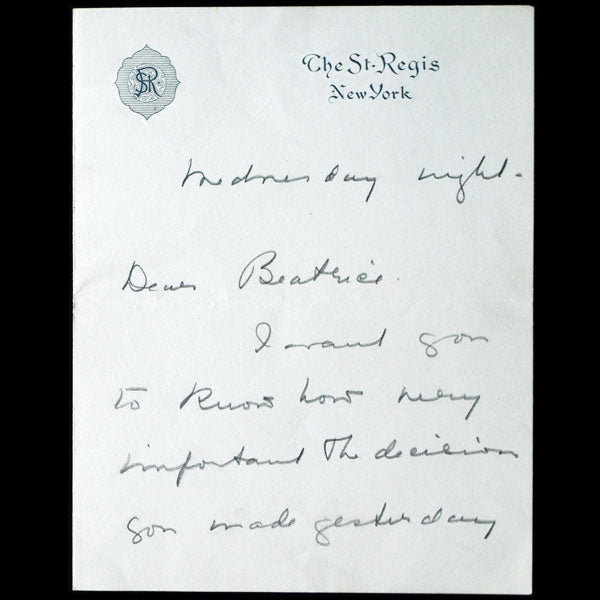 SR
The St. Regis
New York
Wednesday night.
Dear Beatrice.
I want you
to know how very
important the decision
you made yesterday